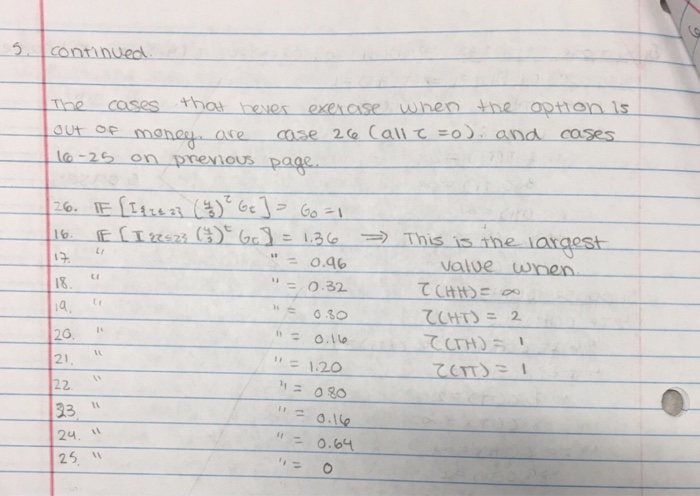 5. continued.
The cases that never exercise when the option is
out of money. are case 26 (all τ = 0). and cases
16-25 on previous page.
26. 𝔼 [I{τ≤2} (4/5)^τ Gτ] = G0 = 1
16. 𝔼 [I{τ≤2} (4/5)^τ Gτ] = 1.36 ⇒ This is the largest
17. " " = 0.96 value when
18. " " = 0.32 τ(HH) = ∞
19. " " = 0.80 τ(HT) = 2
20. " " = 0.16 τ(TH) = 1
21. " " = 1.20 τ(TT) = 1
22 " " = 0.80
23. " " = 0.16
24. " " = 0.64
25. " " = 0